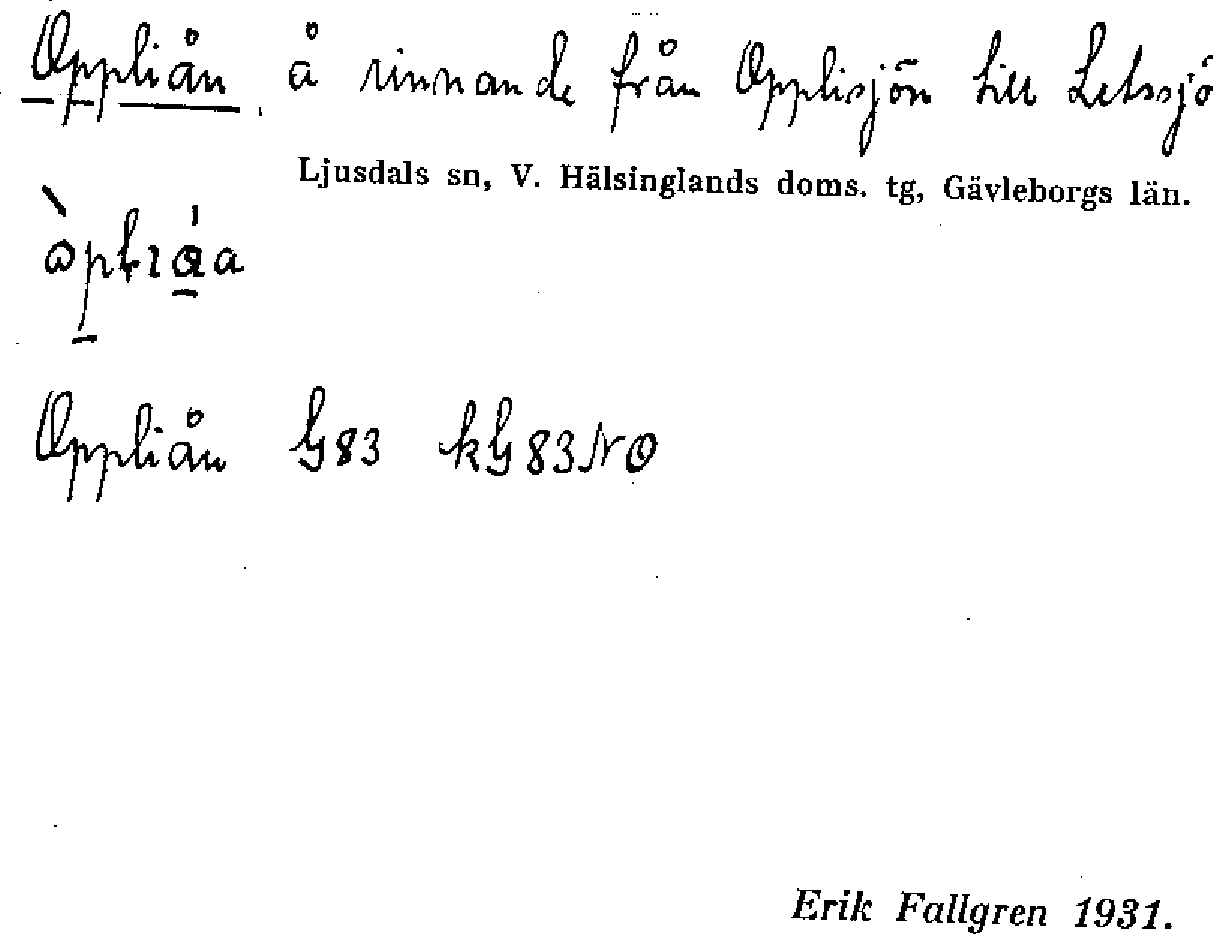 Oppliån å rinnande från Opplisjön till Letssjö
Ljusdals sn, V. Hälsinglands doms. tg, Gävleborgs län.
Oppliån G83 kG83NO
Erik Fallgren 1931.